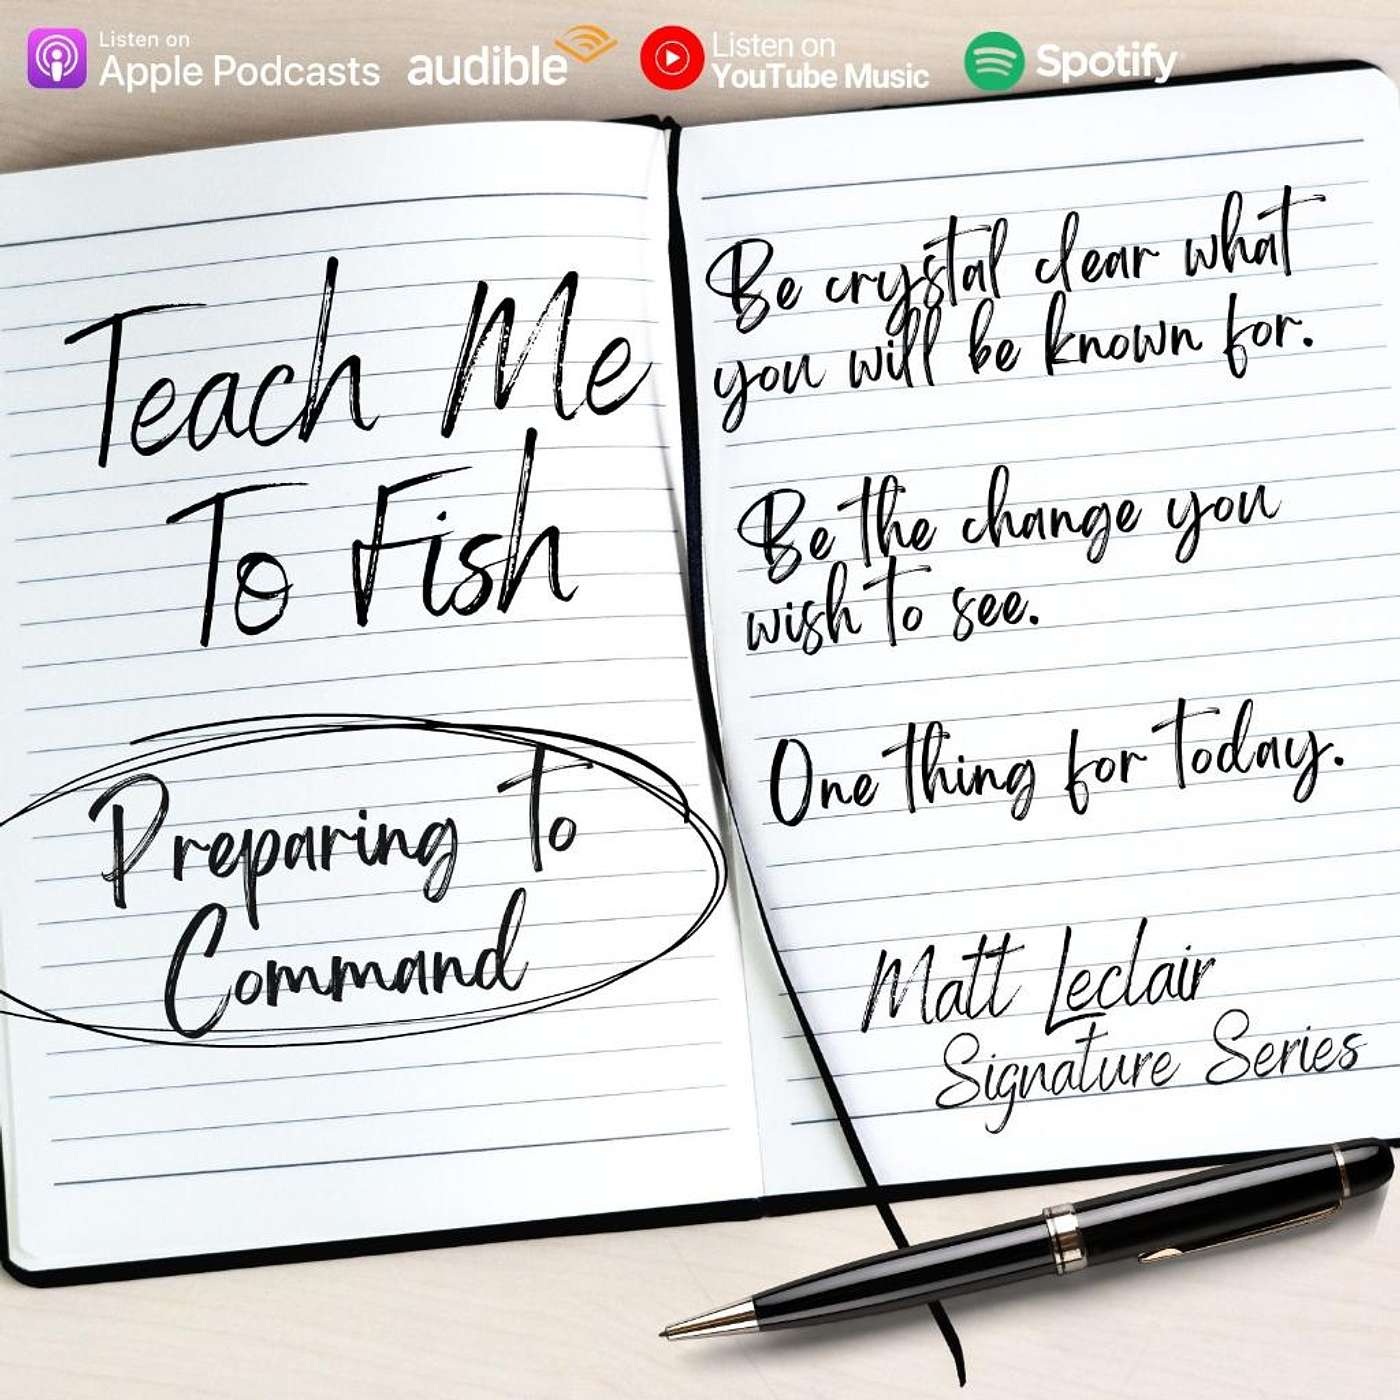 Listen on
Apple Podcasts
audible
Listen on
YouTube Music
Spotify
Teach Me
To Fish
Preparing To
Command
Be crystal clear what
you will be known for.
Be the change you
wish to see.
One thing for today.
Matt Leclair
Signature Series